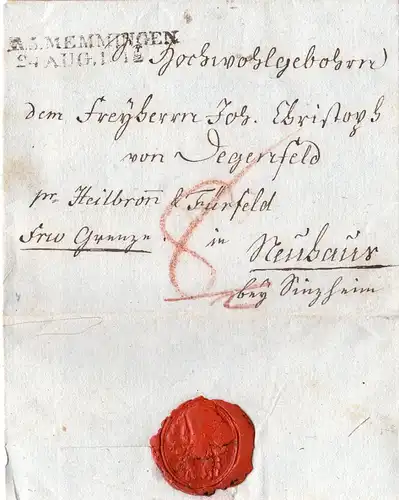 R.3.MEMMINGEN
24 AUG. 1812
Hochwohlgebohrn
dem Freyherrn Joh. Christoph
von Degenfeld
pr Heilbron̄ & Fürfeld
Frco Grenze. in
Neuhaus
bey Sinzheim
8